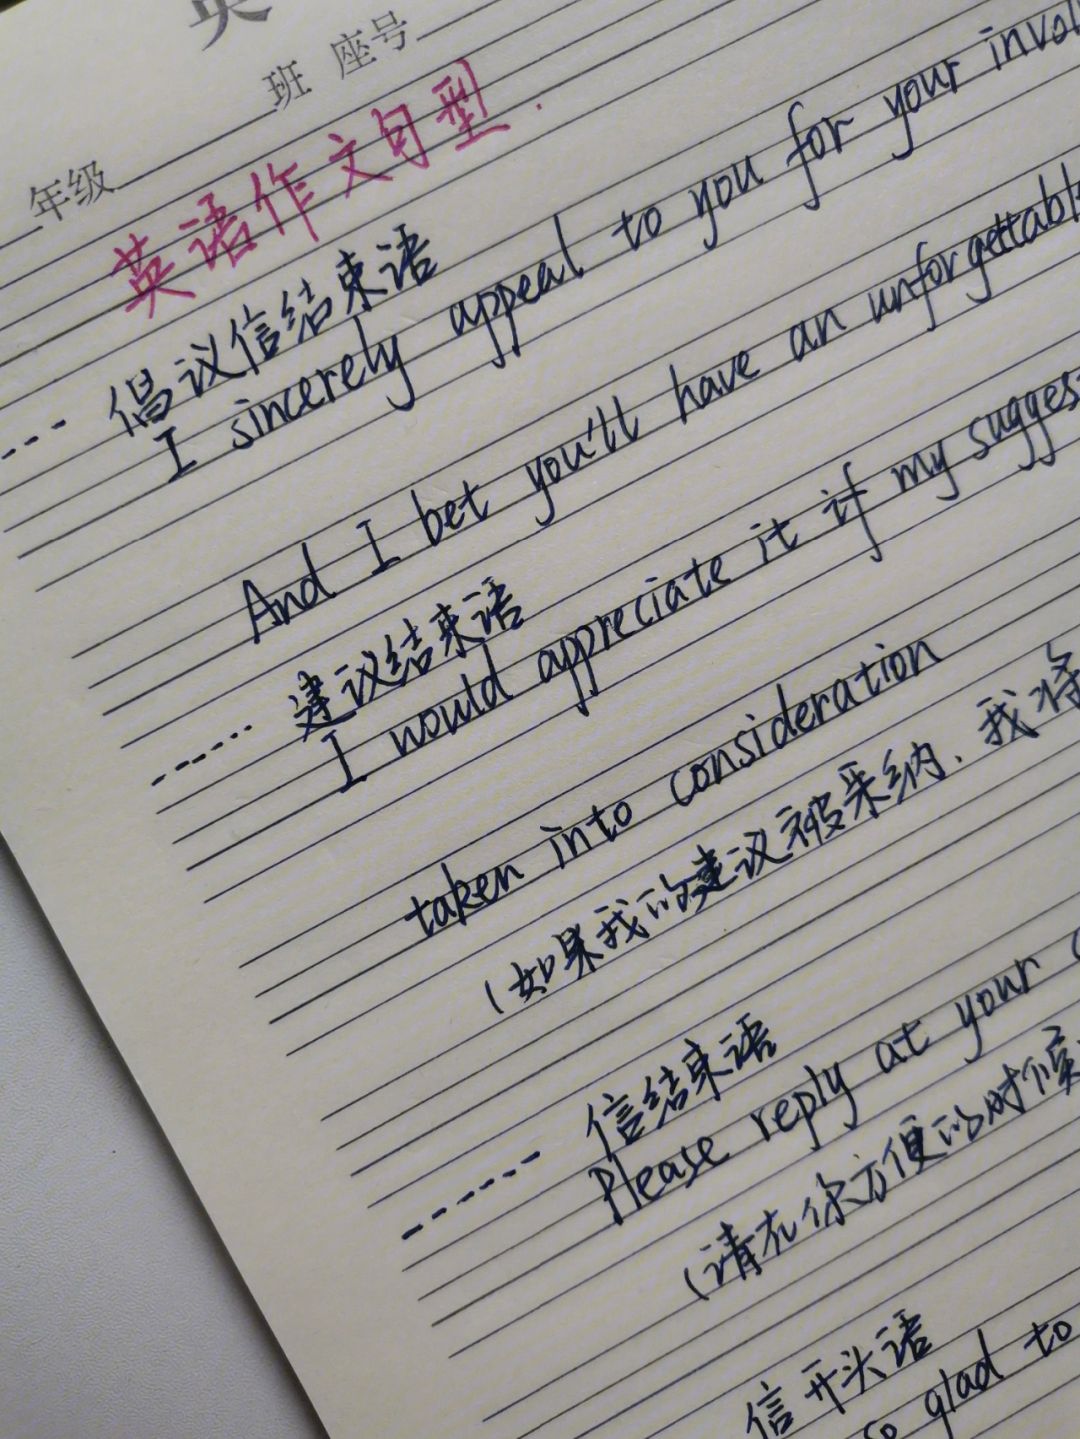 英
年级 班 座号
英语作文句型.
--- 倡议信结束语
I sincerely appeal to you for your
And I bet you'll have an
----- 建议结束语
I would appreciate it if my
taken into consideration
(如果我的建议被采纳, 我将
----- 信结束语
Please reply at your
(请在你方便的时候
信开头语
so glad to